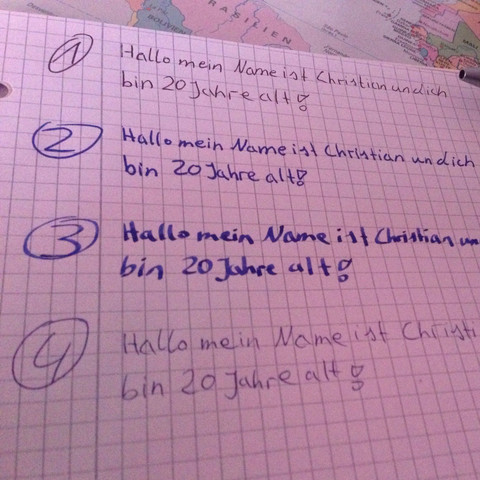 BOLIVIEN
BRASILIEN
1 Hallo mein Name ist Christian und ich
bin 20 Jahre alt!
2 Hallo mein Name ist Christian und ich
bin 20 Jahre alt!
3 Hallo mein Name ist Christian un
bin 20 Jahre alt!
4 Hallo mein Name ist Christi
bin 20 Jahre alt!